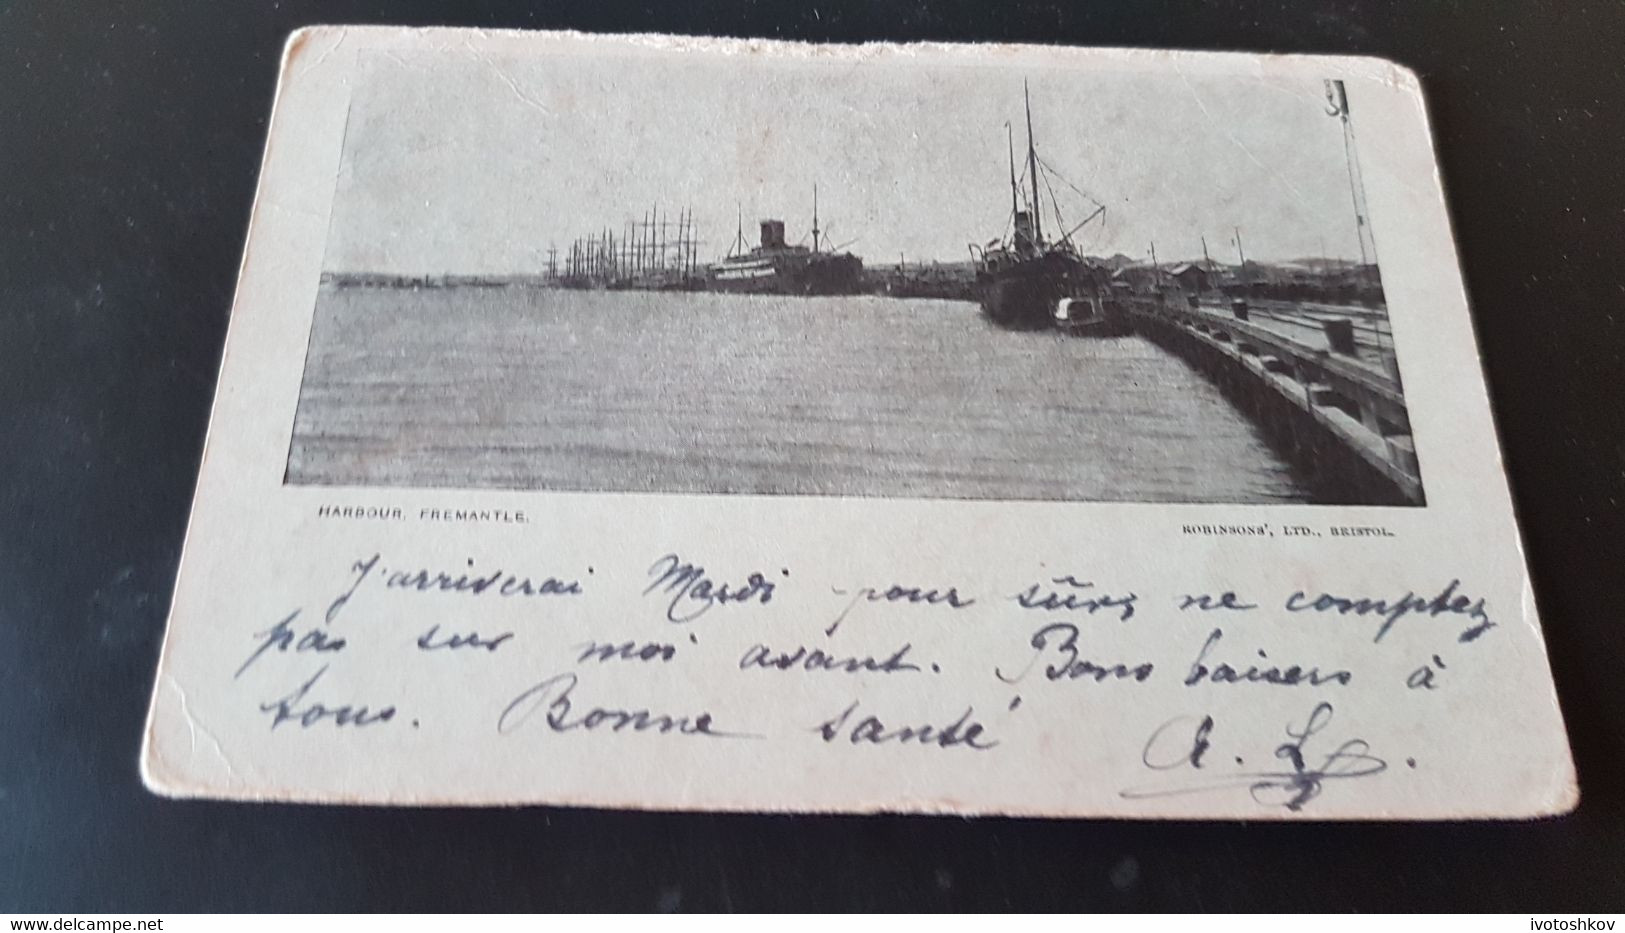 HARBOUR, FREMANTLE.
ROBINSONS', LTD., BRISTOL.
J'arriverai Mardi pour sûr, ne comptez
pas sur moi avant. Bons baisers à
tous. Bonne santé
A. L.
www.delcampe.net
ivotoshkov